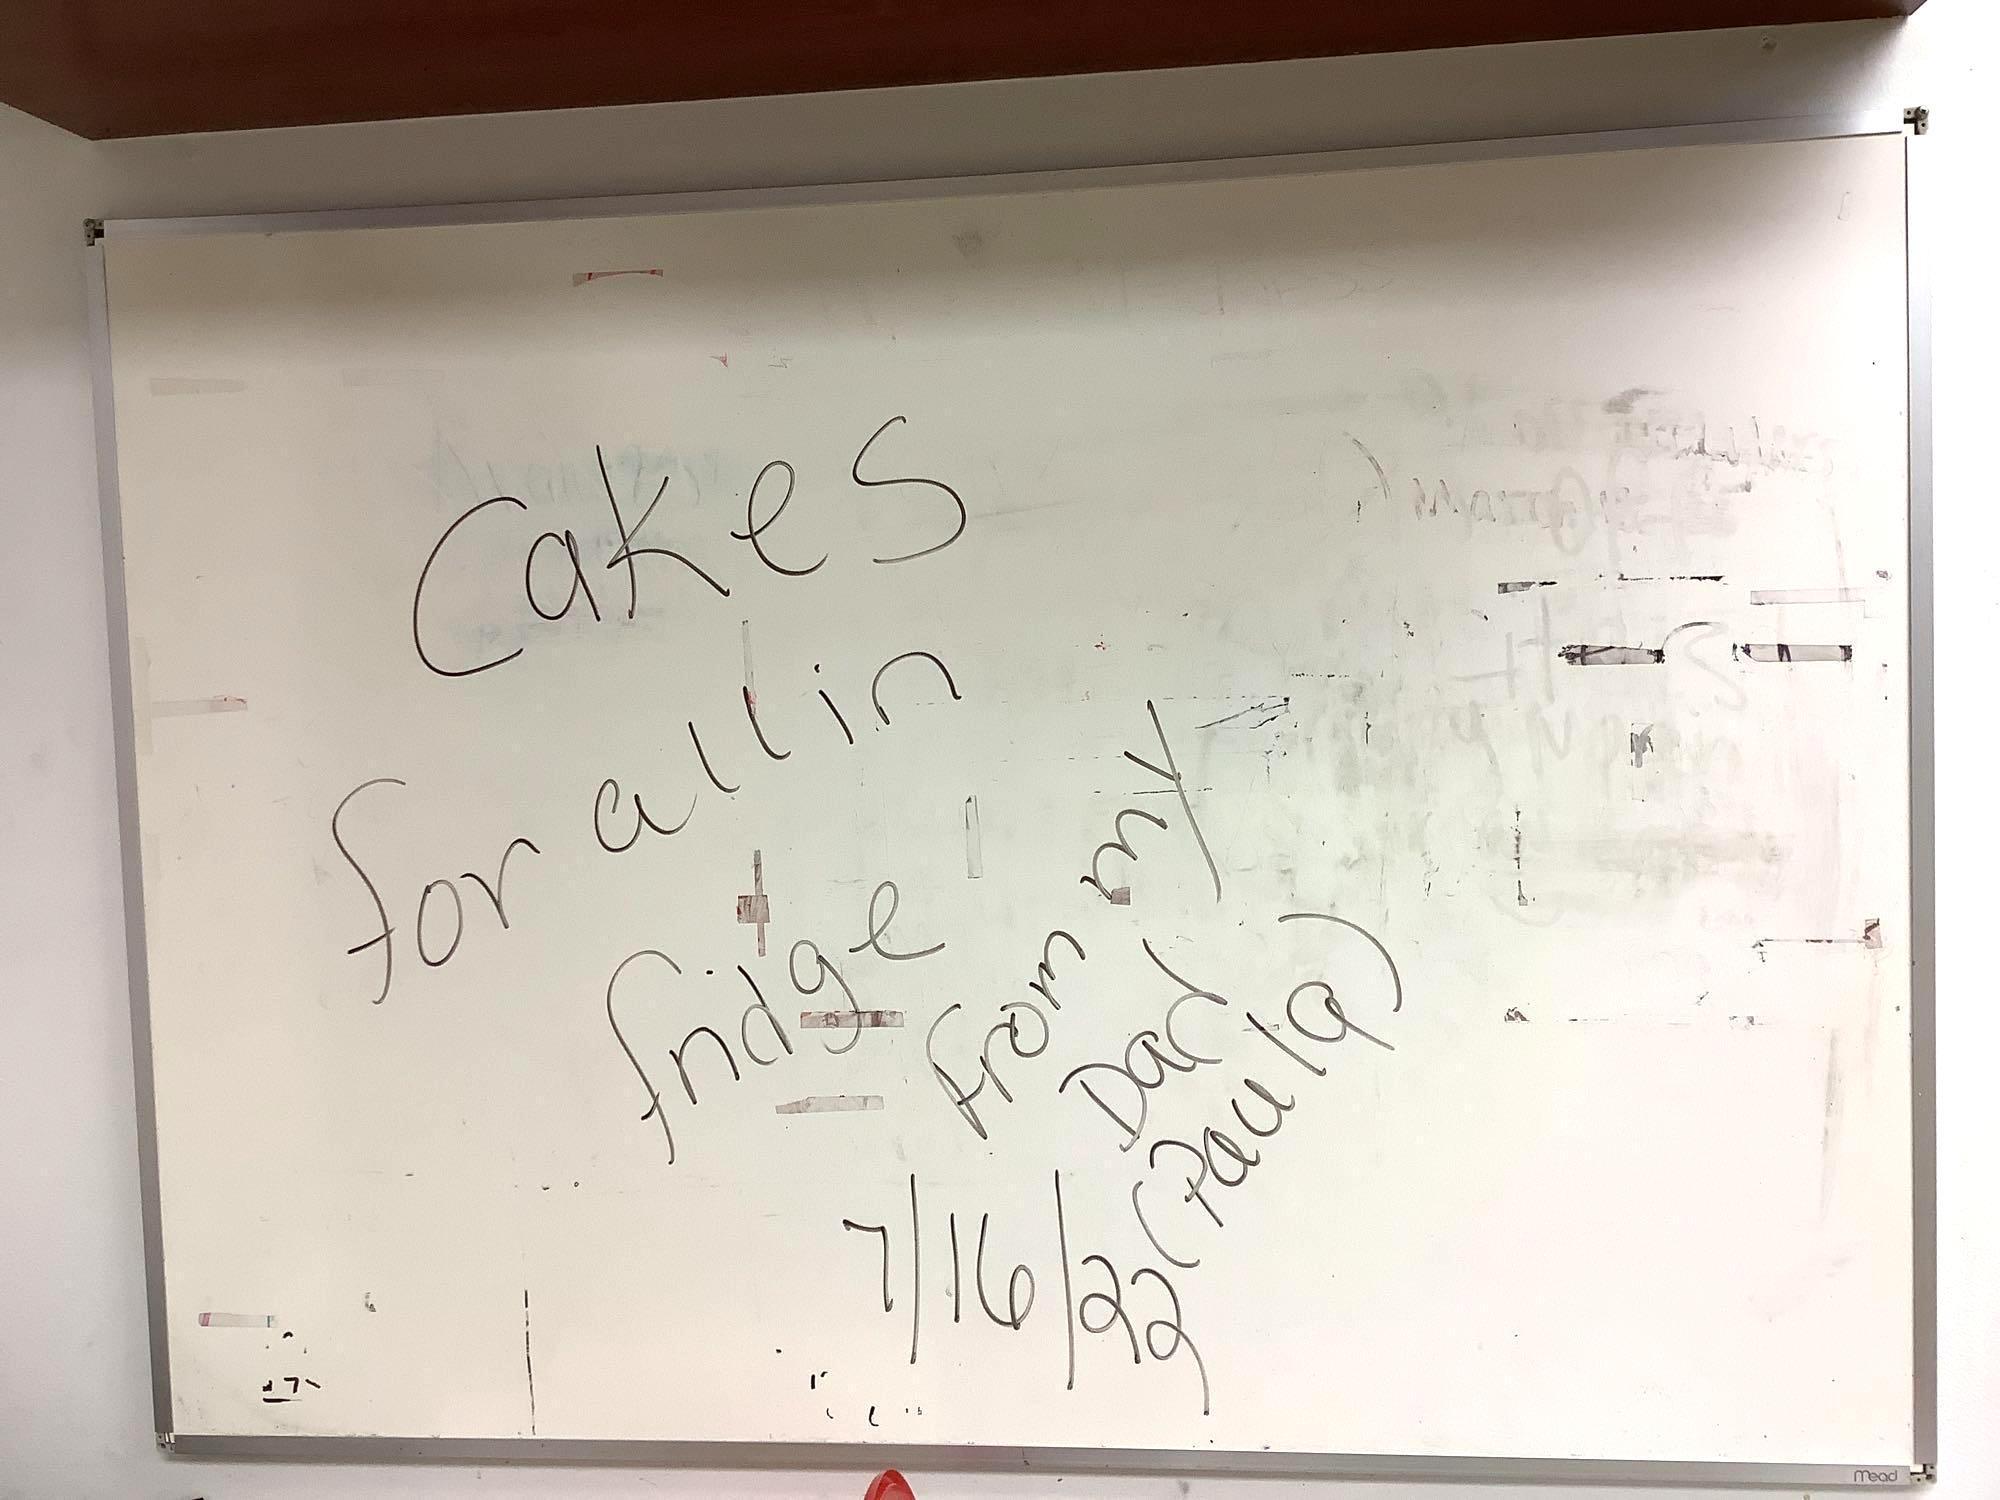 Cakes
for all in
fridge
from my
Dad
(Paula)
7/16/22
Mead